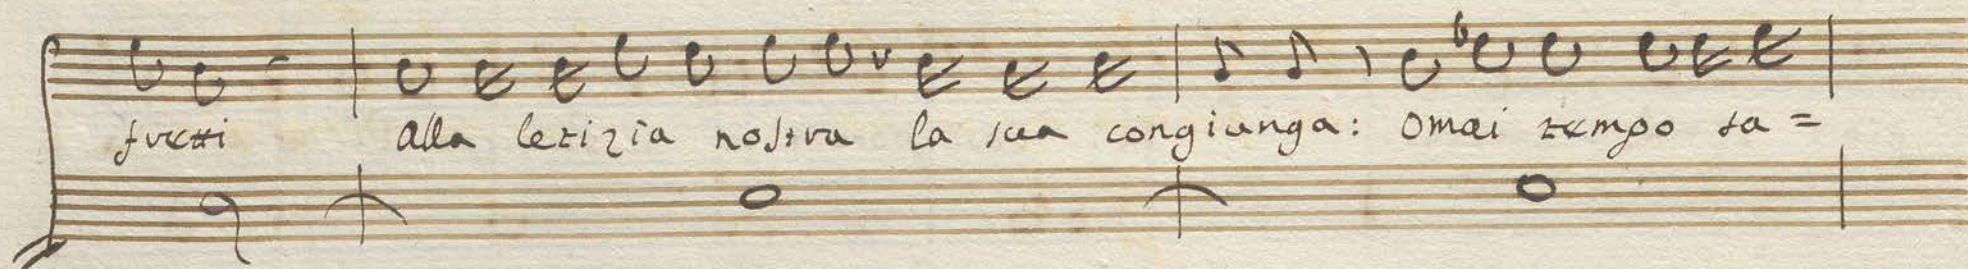 frutti alla letizia nostra la sua congiunga: omai tempo sa=